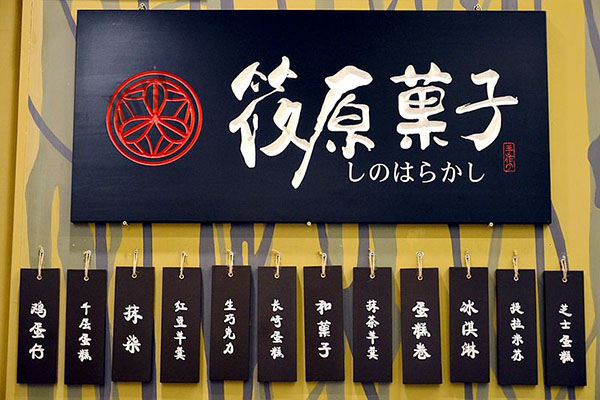 筱原菓子
しのはらかし
手作り
鸡蛋竹
千层蛋糕
抹柴
红豆羊羹
生巧克力
长崎蛋糕
和菓子
抹茶羊羹
蛋糕卷
冰淇淋
提拉米苏
芝士蛋糕